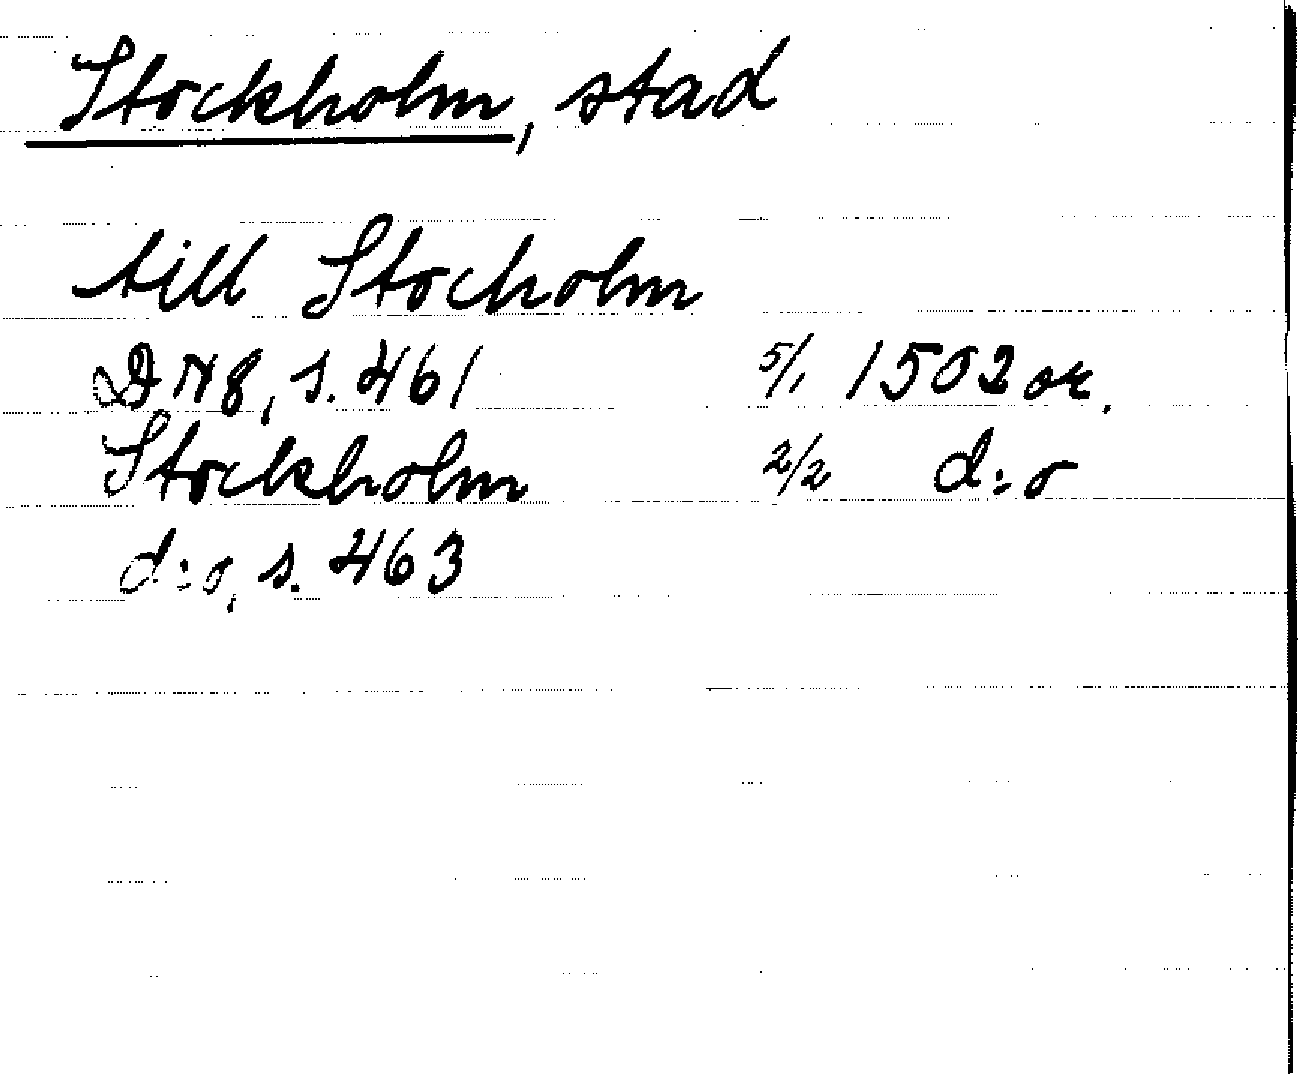 Stockholm, stad
till Stocholm
DN 8, s. 461 5/1 1502 or.
Stockholm 2/2 d:o
d:o, s. 463